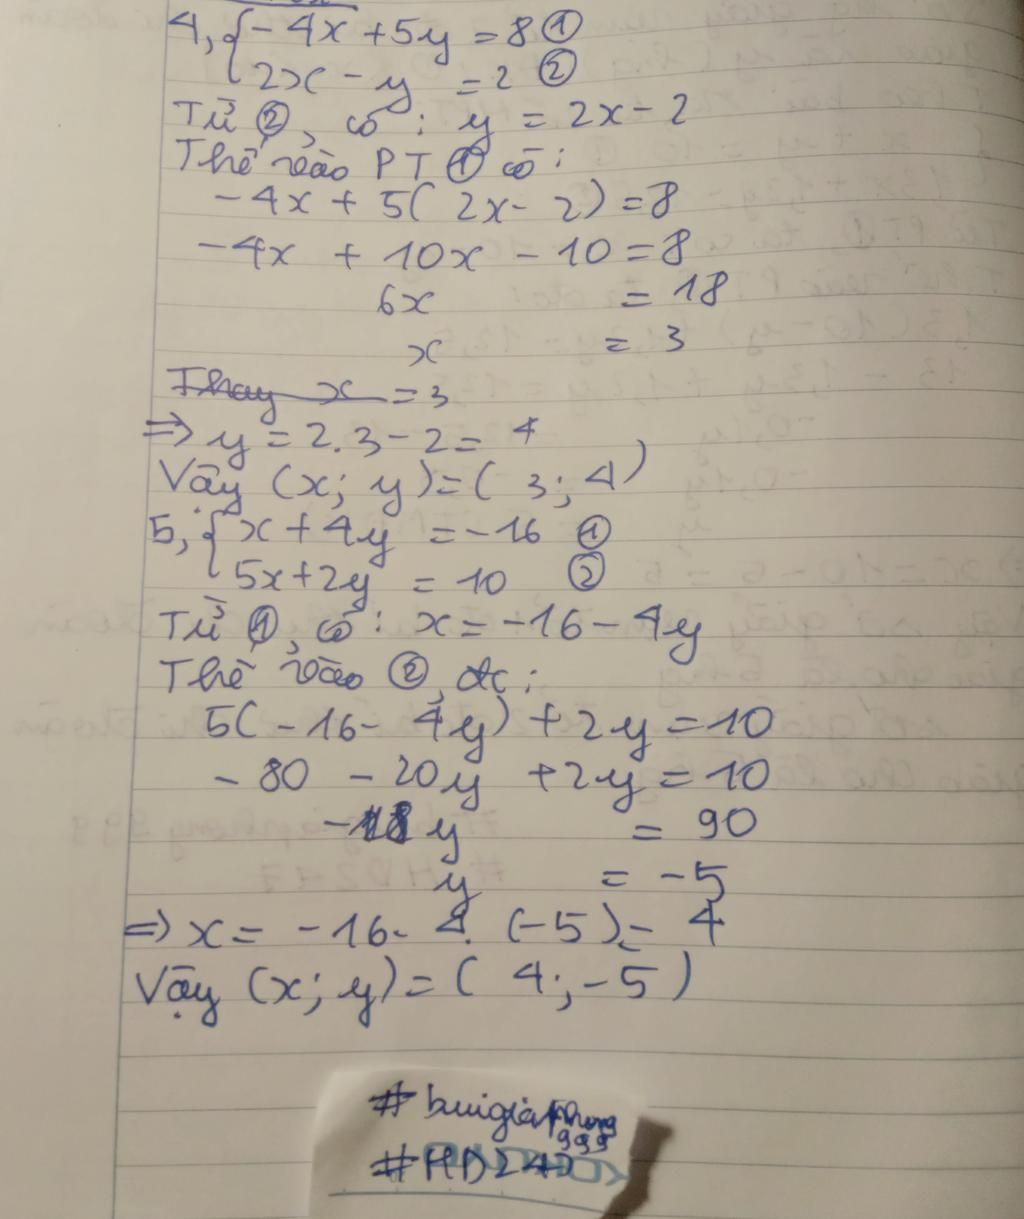 4, { -4x + 5y = 8 ①
2x - y = 2 ②
Từ ②, có : y = 2x - 2
Thế vào PT ① có :
-4x + 5( 2x - 2) = 8
-4x + 10x - 10 = 8
6x = 18
x = 3
Thay x = 3
=> y = 2.3 - 2 = 4
Vậy (x; y) = ( 3; 4)
5, { x + 4y = -16 ①
5x + 2y = 10 ②
Từ ①, có : x = -16 - 4y
Thế vào ②, đc :
5( -16 - 4y) + 2y = 10
- 80 - 20y + 2y = 10
-18y = 90
y = -5
=> x = -16 - 4. (-5) = 4
Vậy (x; y) = ( 4; -5)
# buigiaphong
999